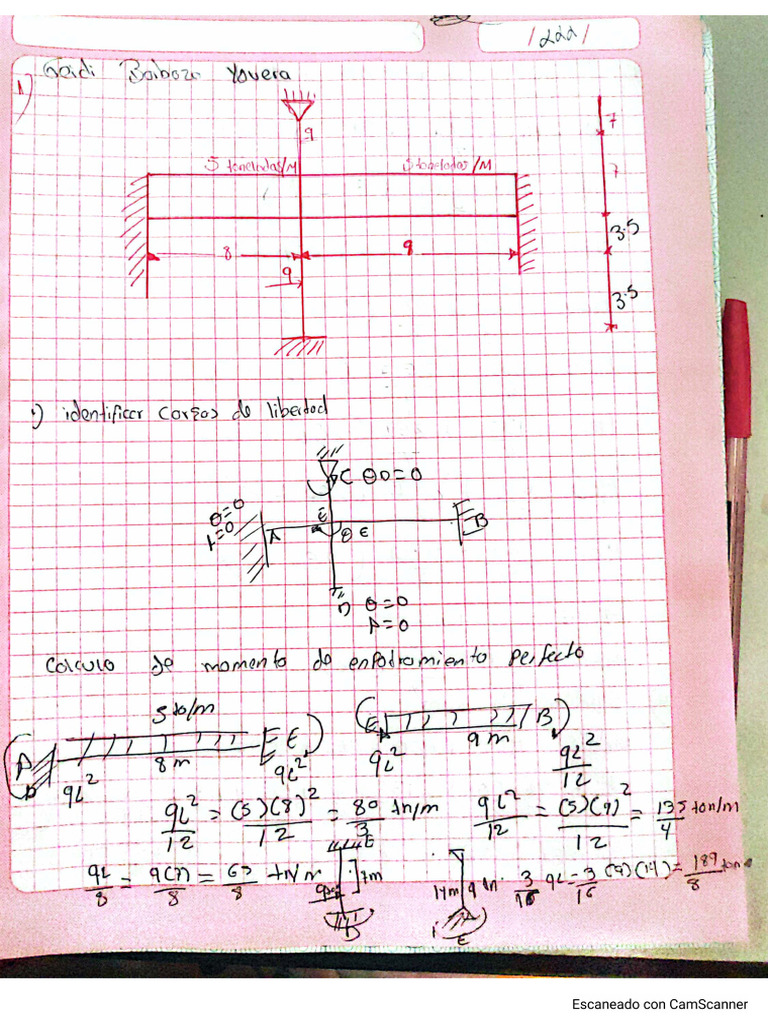 /222/
1) Geidi Barboza Yovera
9
7
5 toneladas/M 5 toneladas/M
7
3.5
8 9
9
3.5
1) identificar cargos de libertad
C θD=0
θ=0
Δ=0
E
A θE B
D θ=0
Δ=0
Calculo de momento de enpotramiento perfecto
5 to/m
A E E B
8 m 9 m
qL² qL² qL² qL²/12
qL²/12 = (5)(8)²/12 = 80/3 tn/m qL²/12 = (5)(9)²/12 = 135/4 ton/m
E
qL/8 = 9(7)/8 = 63/8 tn/m 7m 14m 9 tn. 3/16 qL = 3/16 (9)(14) = 189/8 ton
D E
Escaneado con CamScanner